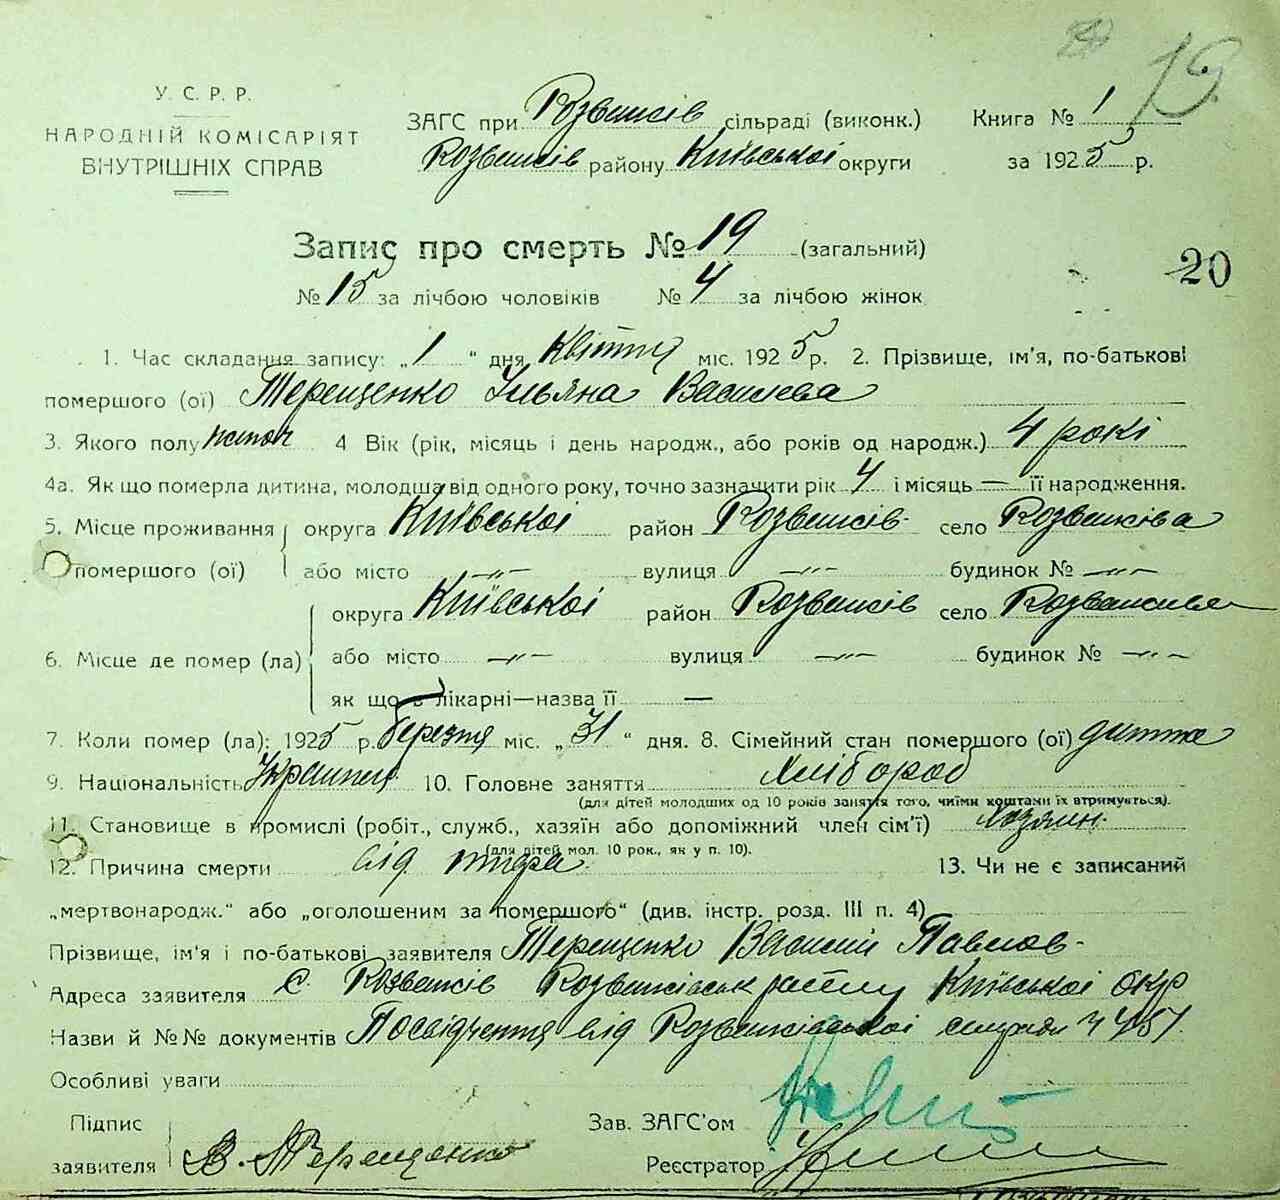 19
У. С. Р. Р.
НАРОДНІЙ КОМІСАРІЯТ
ВНУТРІШНІХ СПРАВ
ЗАГС при Розважів сільраді (виконк.)
Розважів району Київської округи
Книга № 1
за 1925 р.
Запис про смерть № 19 (загальний)
20
№ 15 за лічбою чоловіків № 4 за лічбою жінок
1. Час складання запису: „1“ дня Квітня міс. 1925 р. 2. Прізвище, ім'я, по-батькові
помершого (ої) Терещенко Ульяна Василева
3. Якого полу 4 Вік (рік, місяць і день народж., або років од народж.) 4 рокі
4а. Як що померла дитина, молодша від одного року, точно зазначити рік 4 і місяць — її народження.
5. Місце проживання округа Київської район Розважів село Розважіва
помершого (ої) або місто -„- вулиця -„- будинок № -„-
округа Київської район Розважів село
6. Місце де помер (ла) або місто -„- вулиця -„- будинок № -„-
як що в лікарні—назва її —
7. Коли помер (ла): 1925 р. березня міс. „31“ дня. 8. Сімейний стан помершого (ої) дитя
9. Національність 10. Головне заняття Хлібороб
(для дітей молодших од 10 років заняття того, чиїми коштами їх втримується).
11. Становище в промислі (робіт., служб., хазяїн або допоміжний член сім'ї) хозяин
(для дітей мол. 10 рок., як у п. 10).
12. Причина смерти від 13. Чи не є записаний
„мертвонародж.“ або „оголошеним за помершого“ (див. інстр. розд. III п. 4)
Прізвище, ім'я і по-батькові заявителя Терещенко Василий Павлов-
Адреса заявителя с. Розважів Київської окр
Назви й №№ документів Посвідчення від Розважівської
Особливі уваги
Підпис
заявителя В. Терещенко
Зав. ЗАГС'ом
Реєстратор